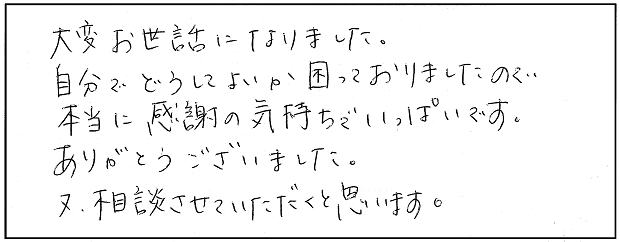 大変お世話になりました。
自分でどうしてよいか困っておりましたので
本当に感謝の気持ちでいっぱいです。
ありがとうございました。
又、相談させていただくと思います。